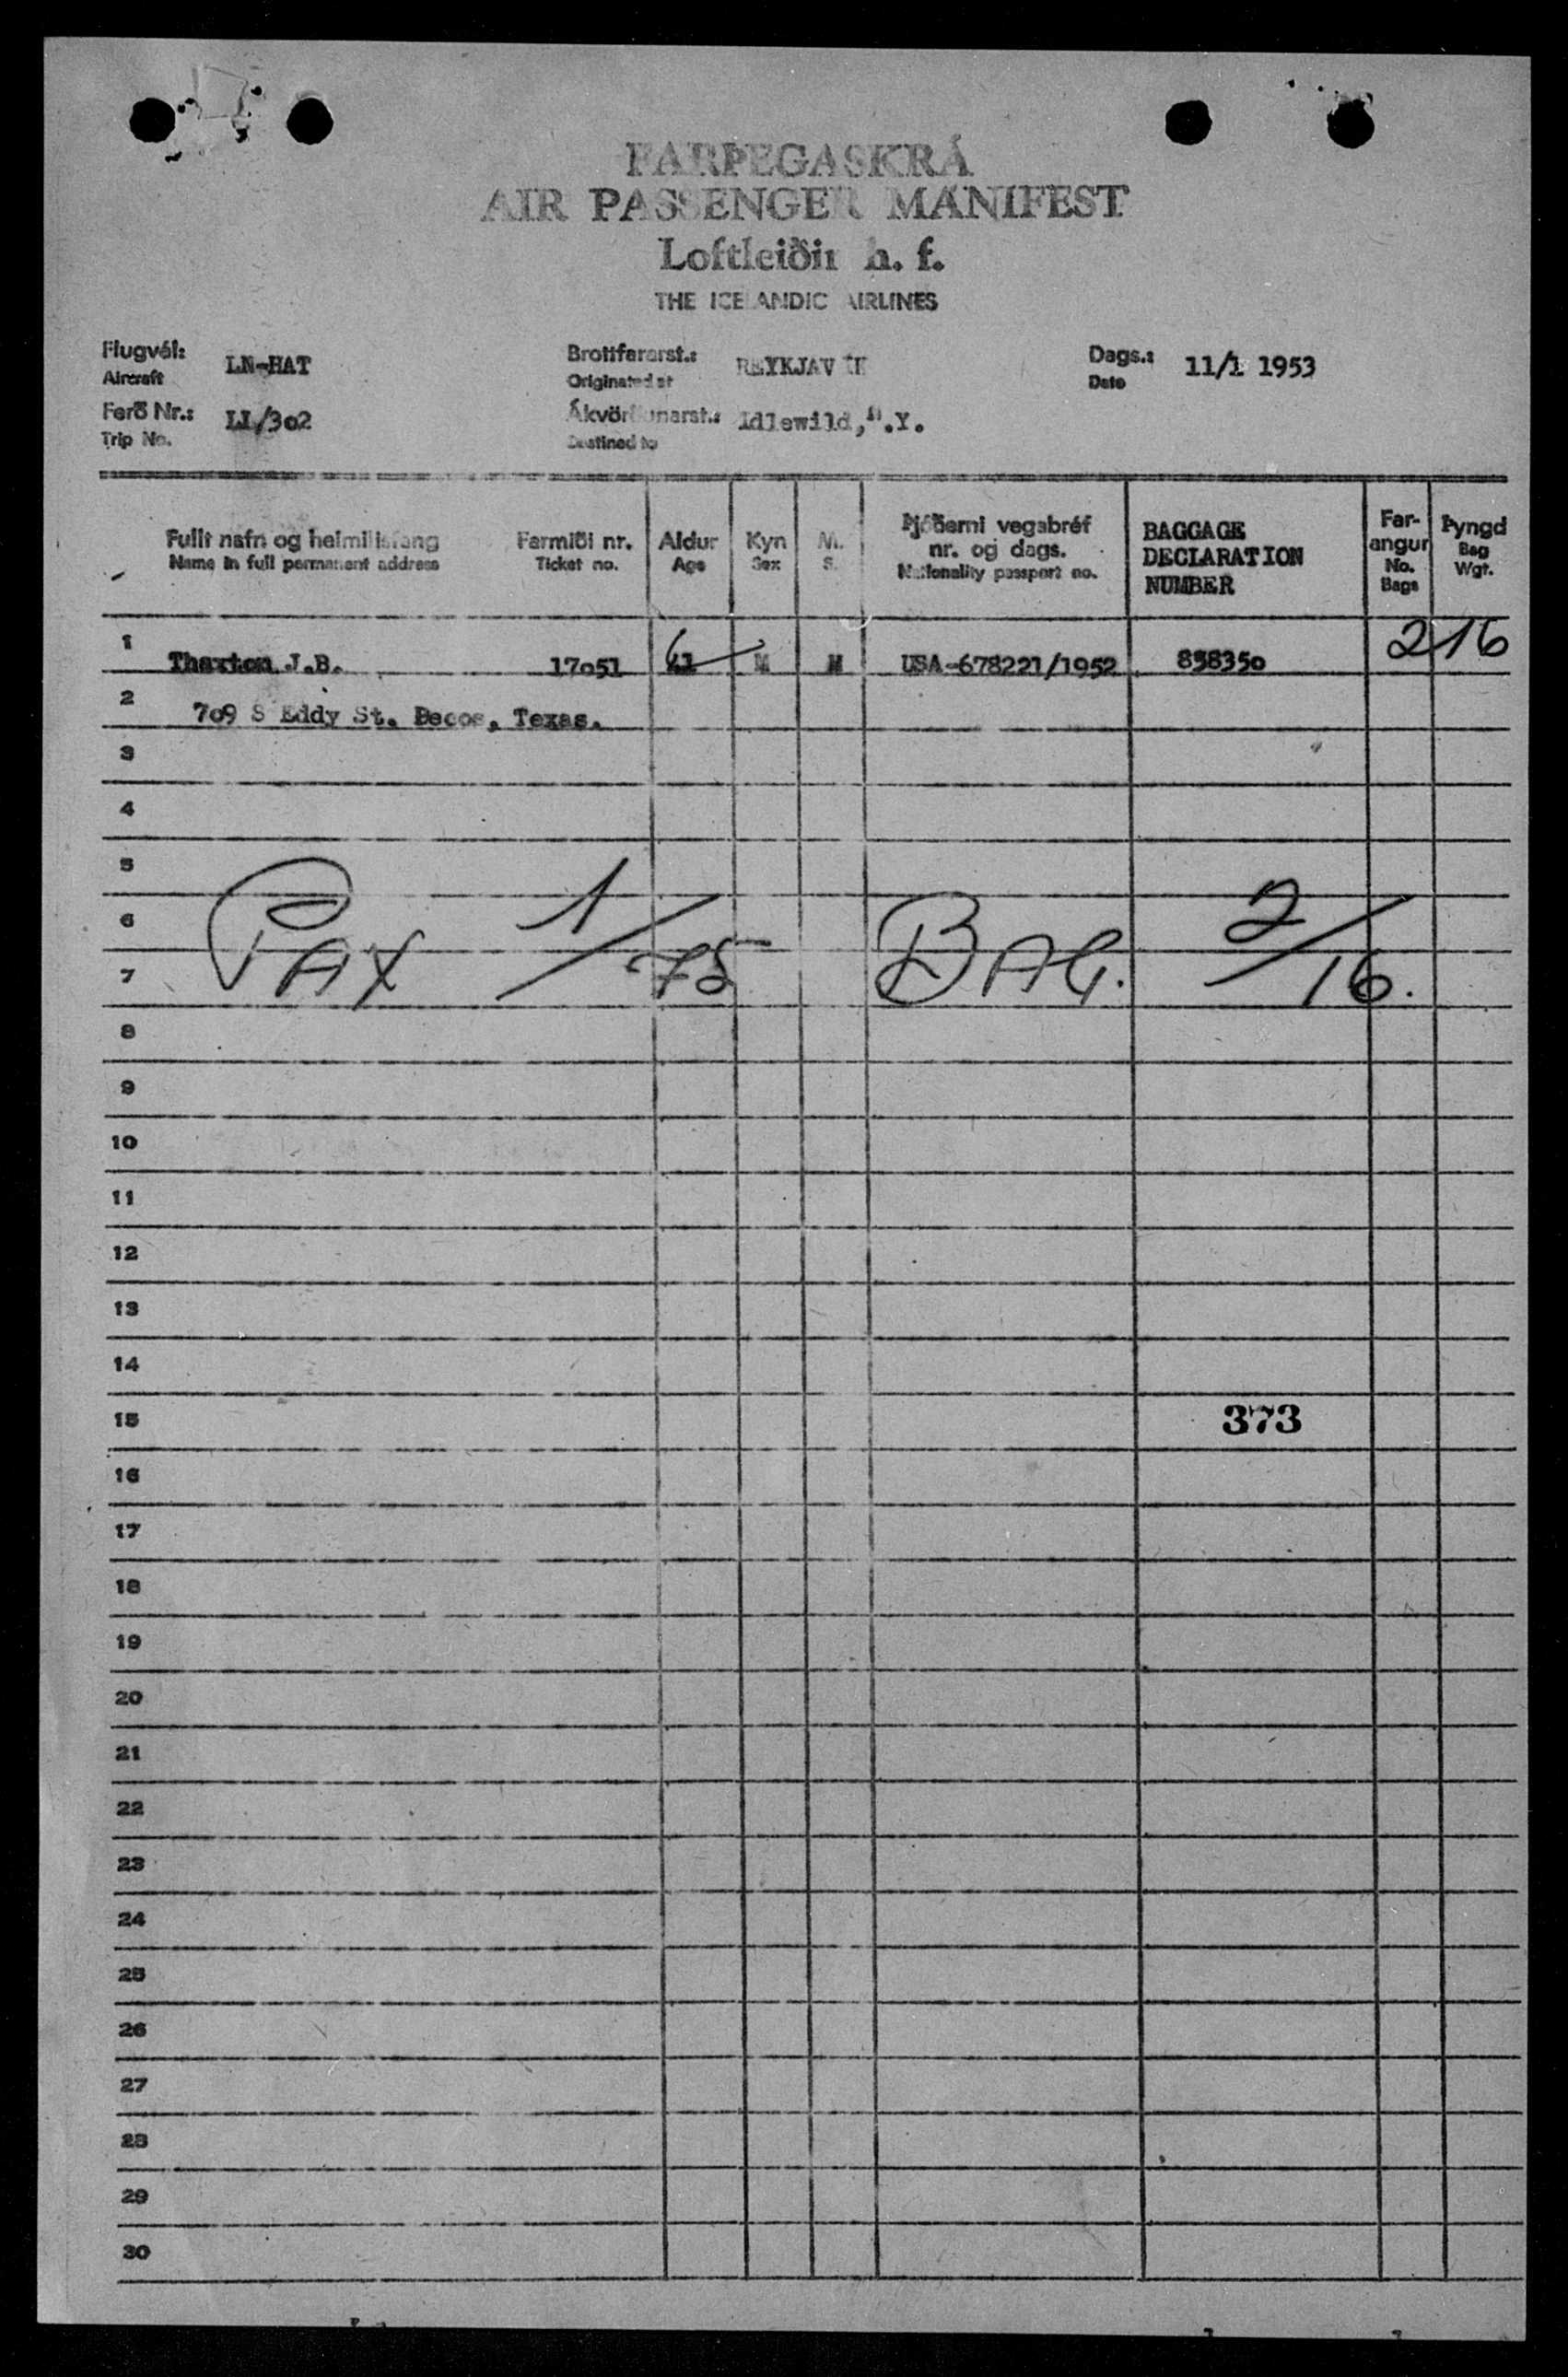 FARÞEGASKRÁ
AIR PASSENGER MANIFEST
Loftleiðir h. f.
THE ICELANDIC AIRLINES
Flugvél: LN-HAT Brottfararst.: REYKJAVIK Dags.: 11/1 1953
Aircraft Originated at Date
Ferð Nr.: LL/302 Ákvörðunarst.: Idlewild, N.Y.
Trip No. Destined to
Fullt nafn og heimilisfang Farmiði nr. Aldur Kyn M. Þjóðerni vegabréf nr. og dags. BAGGAGE DECLARATION NUMBER Far-angur Þyngd
Name in full permanent address Ticket no. Age Sex S. Nationality passport no. No. Bags Bag Wgt.
1 Thaxton J.B. 17051 M M USA-678221/1952 838350 2 16
2 709 S Eddy St. Pecos, Texas.
3
4
5
6
7
PAX 1/75 BAG. 2/16.
8
9
10
11
12
13
14
15 373
16
17
18
19
20
21
22
23
24
25
26
27
28
29
30